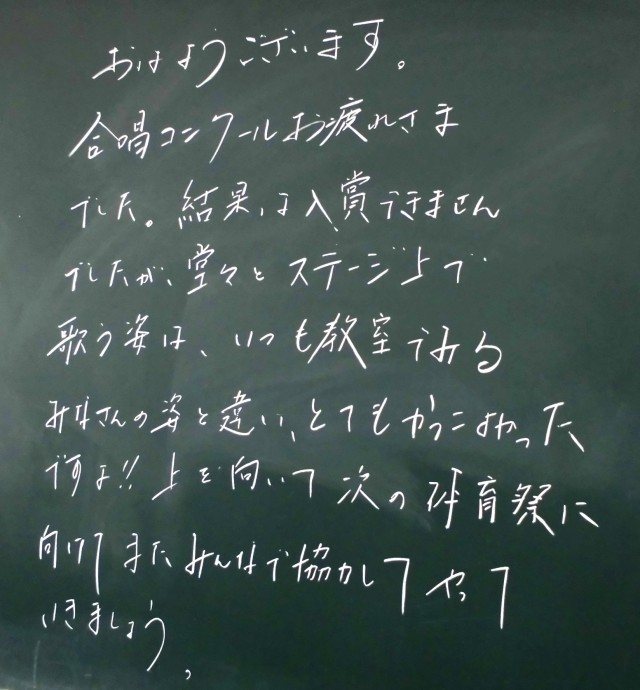 おはようございます。
合唱コンクールお疲れさま
でした。結果は入賞できません
でしたが、堂々とステージ上で
歌う姿は、いつも教室でみる
みなさんの姿と違い、とてもかっこよかった
ですよ!!上を向いて次の研育祭に
向けてまたみんなで協力してやって
いきましょう。